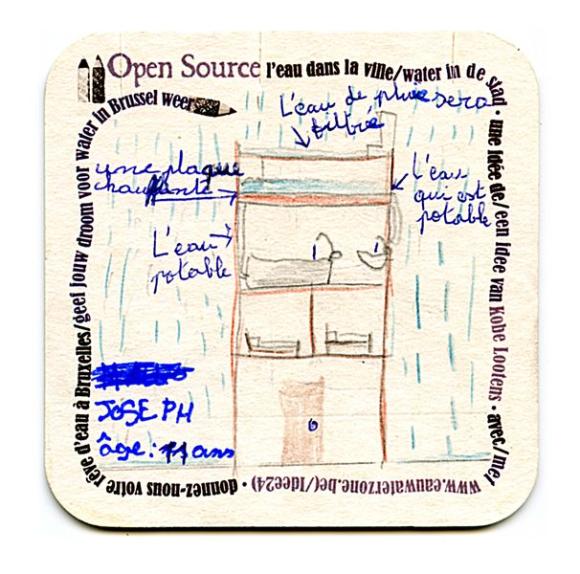 Open Source l'eau dans la ville/water in de stad • une idée de/een idee van Kobe Lootens • avec/met www.eauwaterzone.be(/Idee24) • donnez-nous votre rêve d'eau à Bruxelles/geef jouw droom voor water in Brussel weer
L'eau de pluie sera
filtrée
une plaque
chauffante
L'eau
qui est
potable
L'eau
potable
JOSEPH
âge: 11 ans